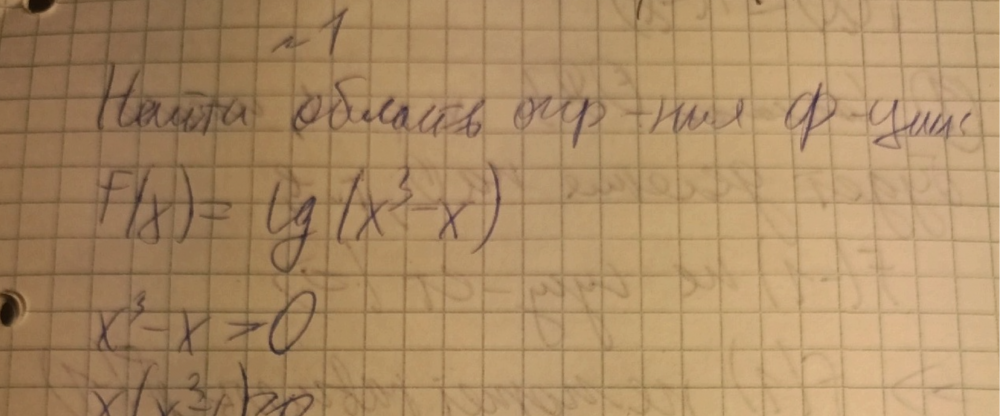 ~1
Найти область опр-ния ф-ции:
F(x) = lg(x³-x)
x³-x>0
x(x²-1)>0